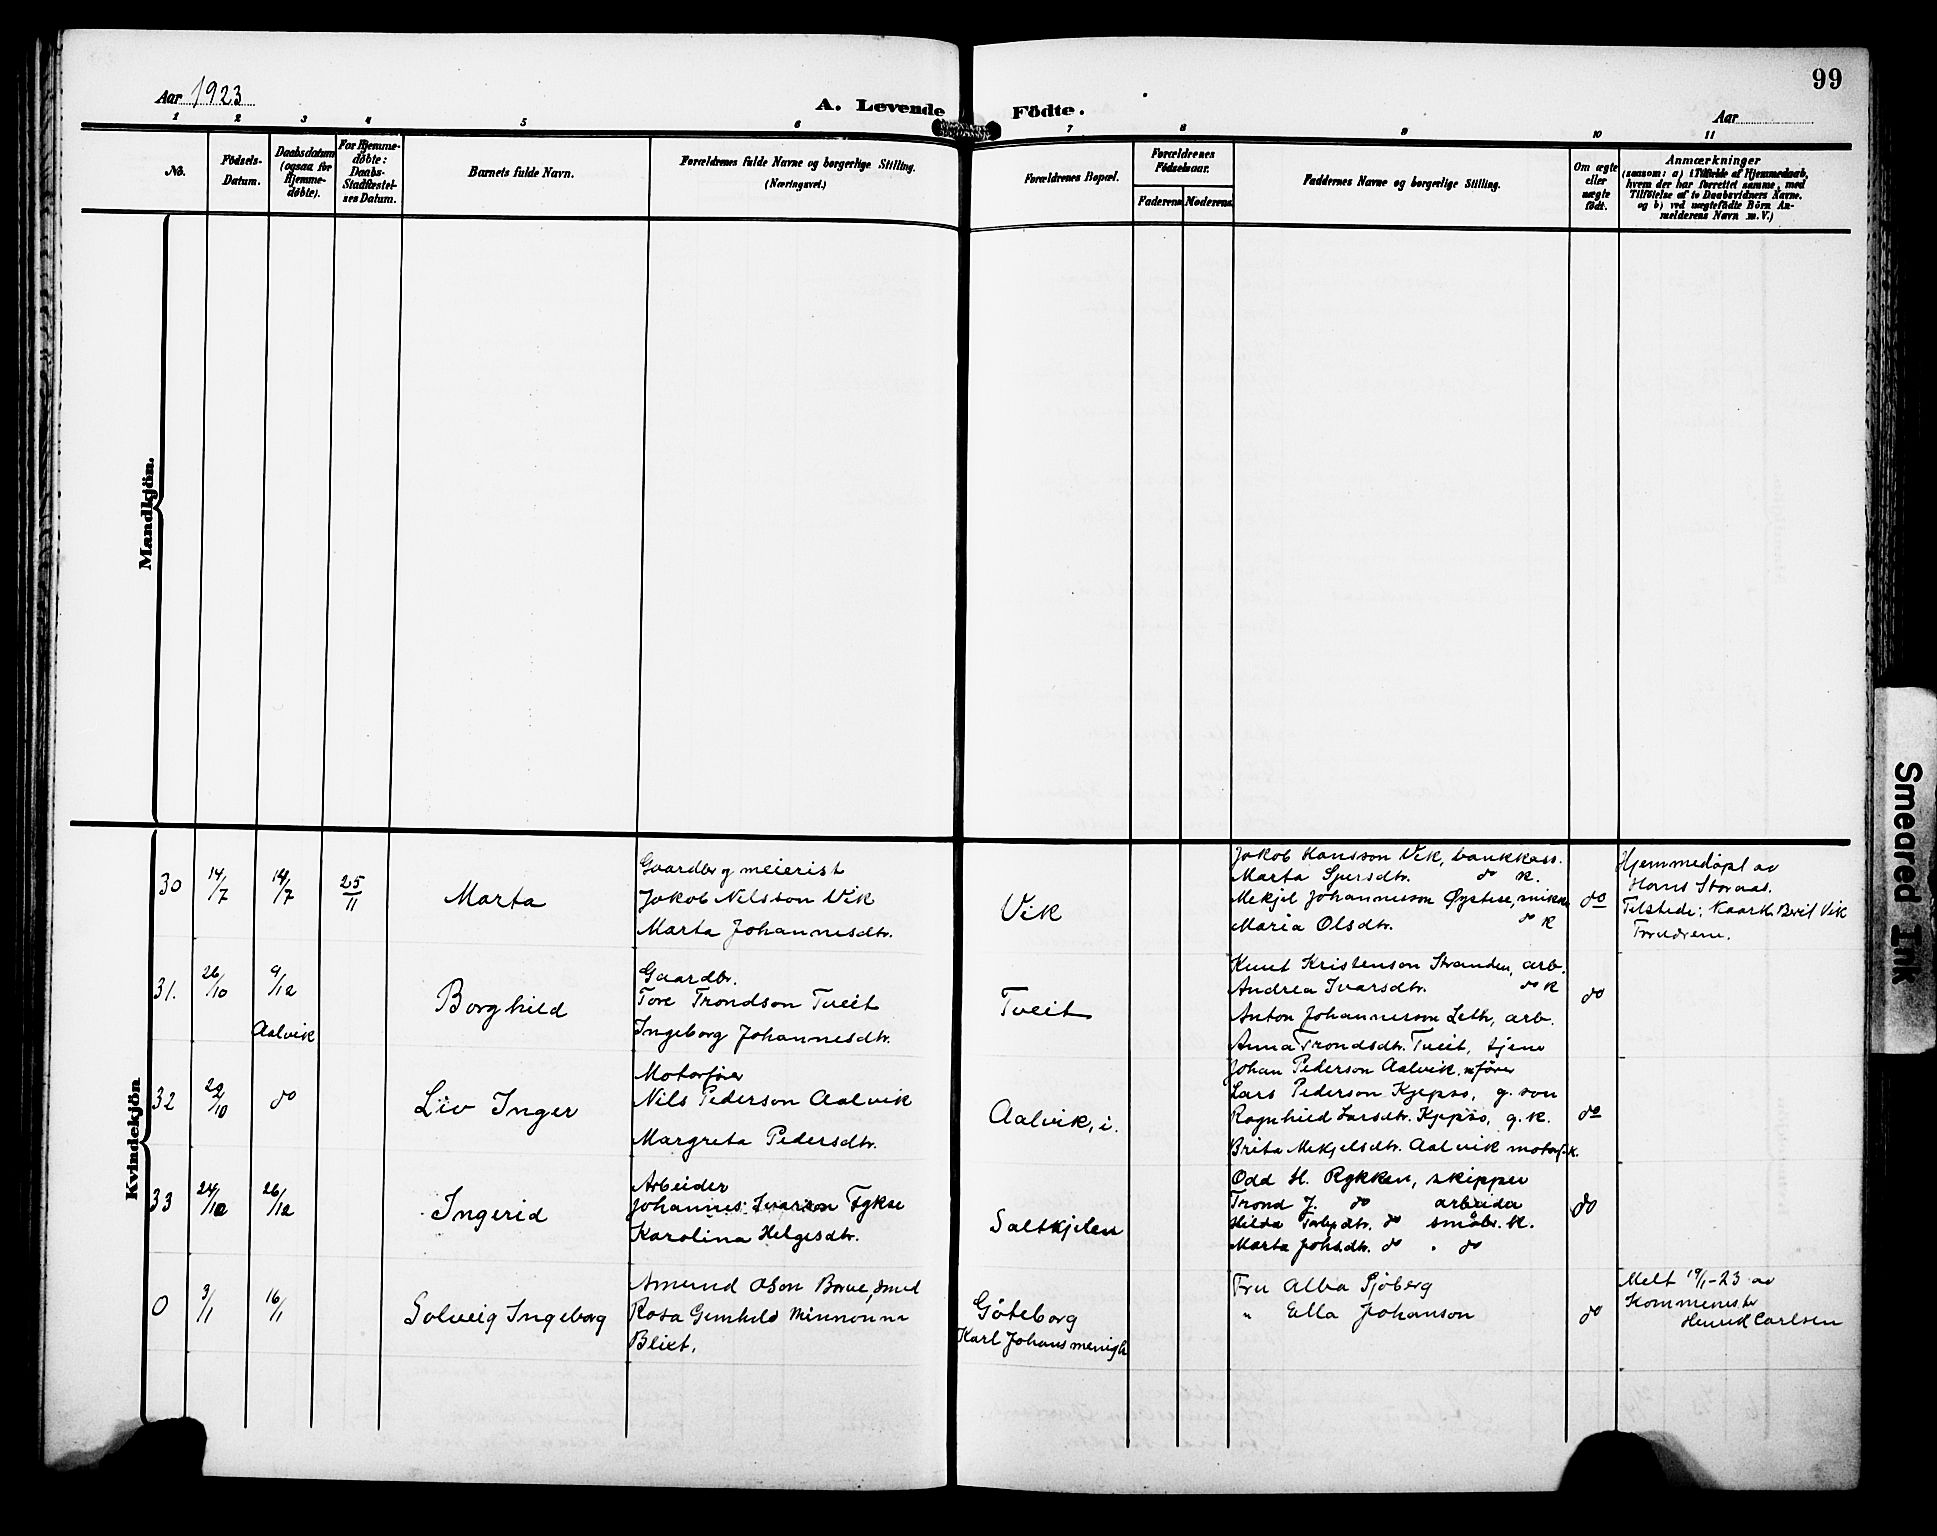 99
Aar 1923
A. Levende Födte.
Aar
1 2 3 4 5 6 7 8 9 10 11
No.
Födsels-Datum.
Daabsdatum (ogsaa for Hjemme-döbte).
For Hjemme-döbte: Daabs-Stadfæstel-ses Datum.
Barnets fulde Navn.
Forældrenes fulde Navne og borgerlige Stilling.
(Næringsvei.)
Forældrenes Bopæl.
Forældrenes Födselsaar.
Faderens
Moderens
Faddernes Navne og borgerlige Stilling.
Om ægte eller uægte födt.
Anmærkninger
(saasom: a) i Tilfælde af Hjemmedaab,
hvem der har forrettet samme, med
Tilföielse af to Daabsvidners Navne.
og b) ved uægtefödte Börn An-
melderens Navn m. V.)
Mandkjön.
Kvindekjön
30
14/7
14/7
25/11
Marta
Gaardbr og meierist
Jakob Nilsson Vik
Marta Johannesdtr.
Vik
Jakob Hansson Vik, bankkass.
Marta Sjursdtr. do k.
Mekjel Johannesson Øystese,
Maria Olsdtr. do k
do
Hjemmedøpt av
Hans Storaas.
Tilstede: Kaar k. Berit Vik
Foreldrene.
31.
26/10
9/12
Aalvik
Borghild
Gaardbr.
Tore Trondson Tveit
Ingeborg Johannesdtr.
Tveit
Knut Kristenson Stranden, arb.
Andrea Ivarsdtr. do k
Anton Johannesson Leth, arb.
Anna Trondsdtr. Tveit, tjene
do
32
22/10
do
Liv Inger
Motorfører
Nils Pederson Aalvik
Margreta Pedersdtr.
Aalvik, i.
Johan Pederson Aalvik, mfører
Lars Pederson Kjepsø, g. son
Ragnhild Larsdtr. Kjepsø, g. k.
Brita Mekjelsdtr. Aalvik motorf. k.
do
33
24/10
26/12
Ingerid
Arbeider
Johannes Ivarson Fykse
Karolina Helgesdtr.
Saltkjelen
Odd H. Rykken, skipper
Trond J. do arbeider
Hilda Torbjdtr. do småbr. k.
Marta Johsdtr. do " do
do
0
3/1
16/1
Solveig Ingeborg
Amund Olson Borve, smed
Rosa Gunhild
Blixt.
Göteborg
Karl Johans menigh
Fru Alba Sjöberg
" Ella Johanson
do
Melt 19/1-23 av
Kommenister
Henrid Carlsen
Smeared Ink